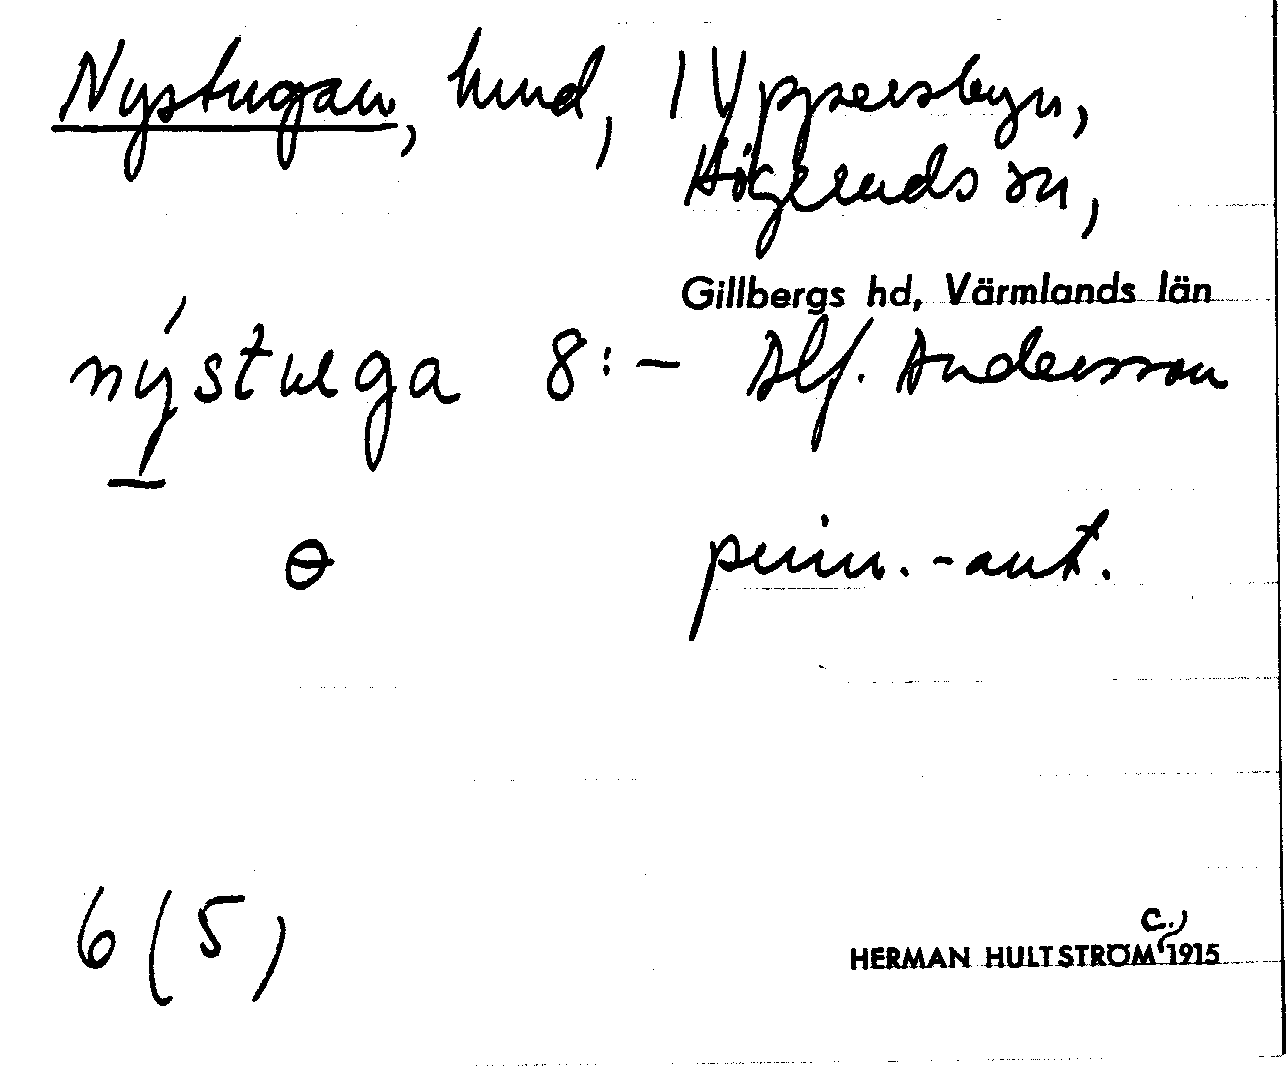 Nystugan, hmd, 1 Yppersbyn,
Högeruds sn,
Gillbergs hd, Värmlands län
nýstuga 8:- Alf. Andersson
ɵ prim.-ant.
6 (5)
c.
HERMAN HULTSTRÖM 1915